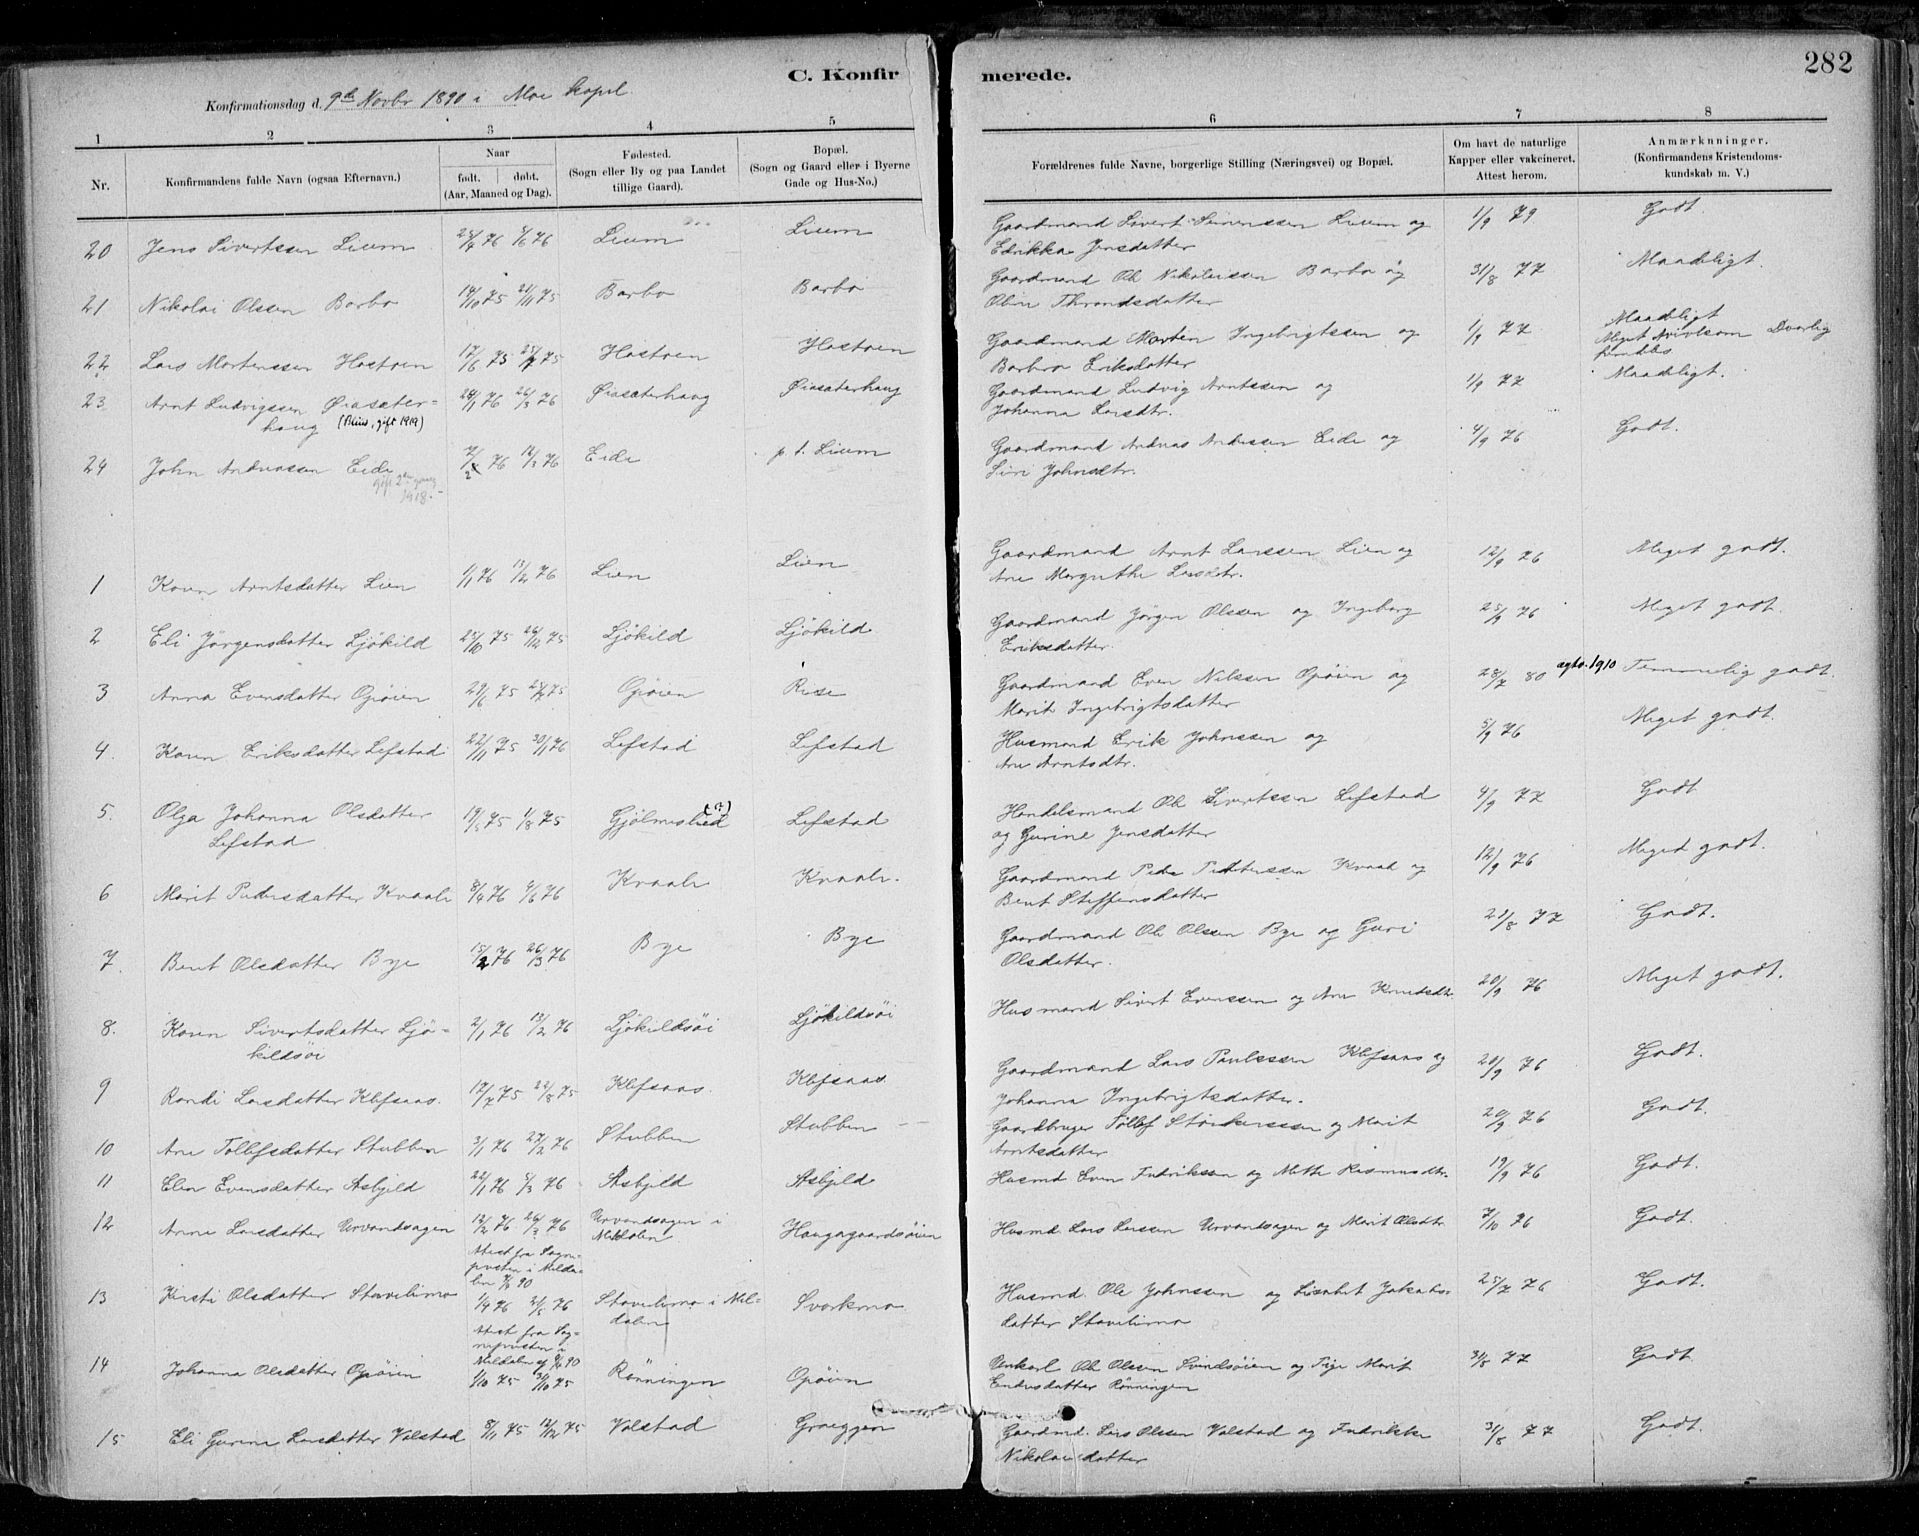 C. Konfir merede. 282
Konfirmationsdag d. 9de Novbr 1890 i Moe kapel
1 2 3 4 5 6 7 8
Nr. Konfirmandens fulde Navn (ogsaa Efternavn.) Naar født. døbt. (Aar, Maaned og Dag). Fødested. (Sogn eller By og paa Landet tillige Gaard). Bopæl. (Sogn og Gaard eller i Byerne Gade og Hus-No.) Forældrenes fulde Navne, borgerlige Stilling (Næringsvei) og Bopæl. Om havt de naturlige Kapper eller vakcineret. Attest herom. Anmærkninger. (Konfirmandens Kristendomskundskab m. V.)
20 Jens Sivertssen Lium 25/4 76 4/6 76 Lium Lium Gaardmand Sivert Simenssen Lium og Edrikka Jensdatter 1/9 79 Godt.
21 Nikolai Olssen Barbo 14/10 75 21/11 75 Barbo Barbo Gaardmand Ole Nikolaissen Barbo og Oline Throndsdatter 31/8 77 Maadeligt.
22 Lars Mortenssen Hostoen 17/6 75 25/7 75 Hostoen Hostoen Gaardmand Morten Ingebrigtssen og Barbro Eriksdatter 1/9 77 Maadligt Meget tvivlsom Dvorlig
23 Arnt Ludvigssen Øiasæterhaug (Blius, gift 1919) 24/1 76 26/3 76 Øiasæterhaug Øiasæterhaug Gaardmand Ludvig Arntssen og Johanna Larsdtr. 1/9 77 Maadeligt.
24 John Andreassen Eide gift 2den gang 1918. 2/2 76 12/3 76 Eide p. t. Lium Gaardmand Andreas Anderssen Eide og Siri Johnsdtr. 4/9 76 Godt.
1 Karen Arntsdatter Lien 1/1 76 13/2 76 Lien Lien Gaardmand Arnt Larssen Lien og Ane Margrethe Larsdtr. 12/9 76 Meget godt.
2 Eli Jørgensdatter Ljökild 25/10 75 26/12 75 Ljökild Ljökild Gaardmand Jørgen Olssen og Ingeborg Eriksdatter. 25/9 76 Meget godt.
3 Anna Evensdatter Opöien 29/6 75 25/7 75 Opöien Rise Gaardmand Even Nilssen Opöien og Marit Ingebrigtsdatter 28/7 80 agts. 1910 Temmelig godt.
4. Karen Eriksdatter Lefstad 22/11 75 30/1 76 Lefstad Lefstad Husmand Erik Johnssen og Ane Arntsdtr. 5/9 76 Meget godt.
5. Olga Johanna Olsdatter Lefstad 19/5 75 1/8 75 Gjölmeslied (?) Lefstad Handelsmand Ole Sivertssen Lefstad og Gurine Jensdatter 4/9 77 Godt
6 Marit Pedersdatter Kvaale 8/4 76 4/6 76 Kvaale Kvaale. Gaardmand Peder Pederssen Kvaale og Berit Steffensdatter 12/9 76 Meged godt.
7. Berit Olsdatter Bye 15/2 76 26/3 76 Bye Bye Gaardmand Ole Olssen Bye og Guri Olsdatter. 21/8 77 Godt.
8. Karen Sivertsdatter Ljökildsöi 2/1 76 13/2 76 Ljökildsöi Ljökildsöi Husmand Sivert Evenssen og Ane Knudsdtr 20/9 76 Meget godt.
9 Randi Larsdatter Klefsaas. 17/7 75 22/8 75 Klefsaas. Klefsaas Gaardmand Lars Paulssen Klefsaas og Johanna Ingebrigtsdatter. 20/9 76 Godt.
10 Ane Tollefsdatter Stubben 3/1 76 27/2 76 Stubben Stubben Gaardbruger Tollef Størkerssen og Marit Arntsdatter 20/9 76 Godt.
11 Elen Evensdatter Asbjeld 22/1 76 5/3 76 Asbjeld Asbjeld Husmd Even Fredrikssen og Mette Rasmusdtr. 19/9 76 Godt.
12 Anne Larsdatter Urvandsagen 12/2 76 26/3 76 Attest fra Sognepresten i Meldalen 90 Urvandsagen i Meldalen Haugagaardsöien Husmd. Lars Larssen Urvandsagen og Marit Olsdtr 7/10 76 Godt.
13 Kirsti Olsdatter Stavelimo 1/4 76 21/5 76 Attest fra Sognepresten i Meldalen 90 Stavelimo i Meldalen Svorkmo Husmd. Ole Johnssen og Lisabet Jakobsdatter Stavelimo 25/7 76 Godt.
14 Johanna Olsdatter Opöien 1/10 75 31/10 75 Rönningen Opöien Unkarl Ole Olssen Svinelsöien og Pige Marit Endresdatter Rönningen 31/8 77 Godt
15 Eli Gurine Larsdatter Volstad 8/11 75 12/12 75 Volstad Graeggen Gaardmd. Lars Olssen Volstad og Fredrikke Nikolaisdatter 31/8 77 Godt.